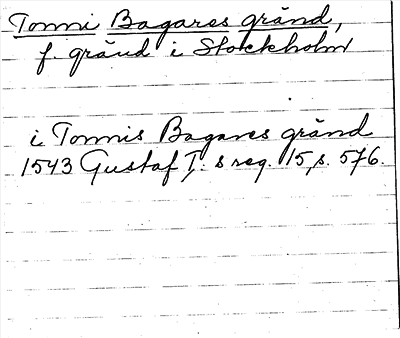 Tonni Bagares gränd,
f. gränd i Stockholm
i Tonnis Bagares gränd
1543 Gustaf I:s reg. 15, s. 576.